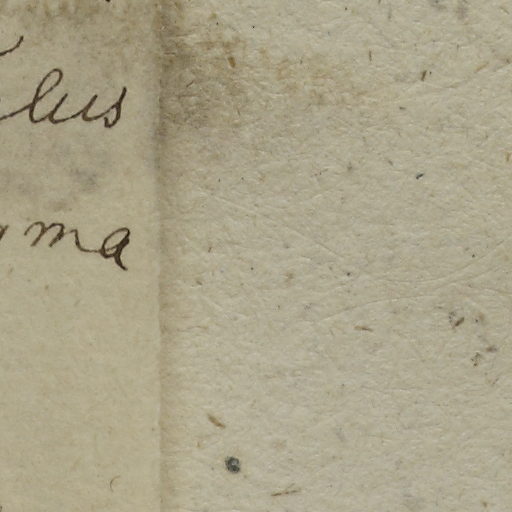 lus
ma